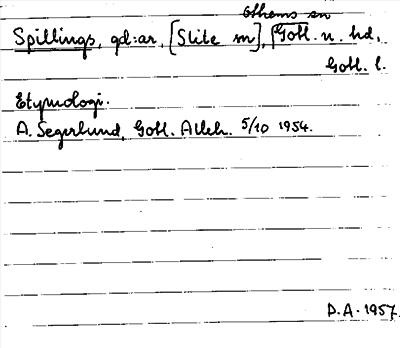 Othems sn
Spillings, gd:ar, [Slite m], Gotl. n. hd,
Gotl. l.
Etymologi.
A. Segerlund, Gotl. Alleh. 5/10 1954.
D.A. 1957.